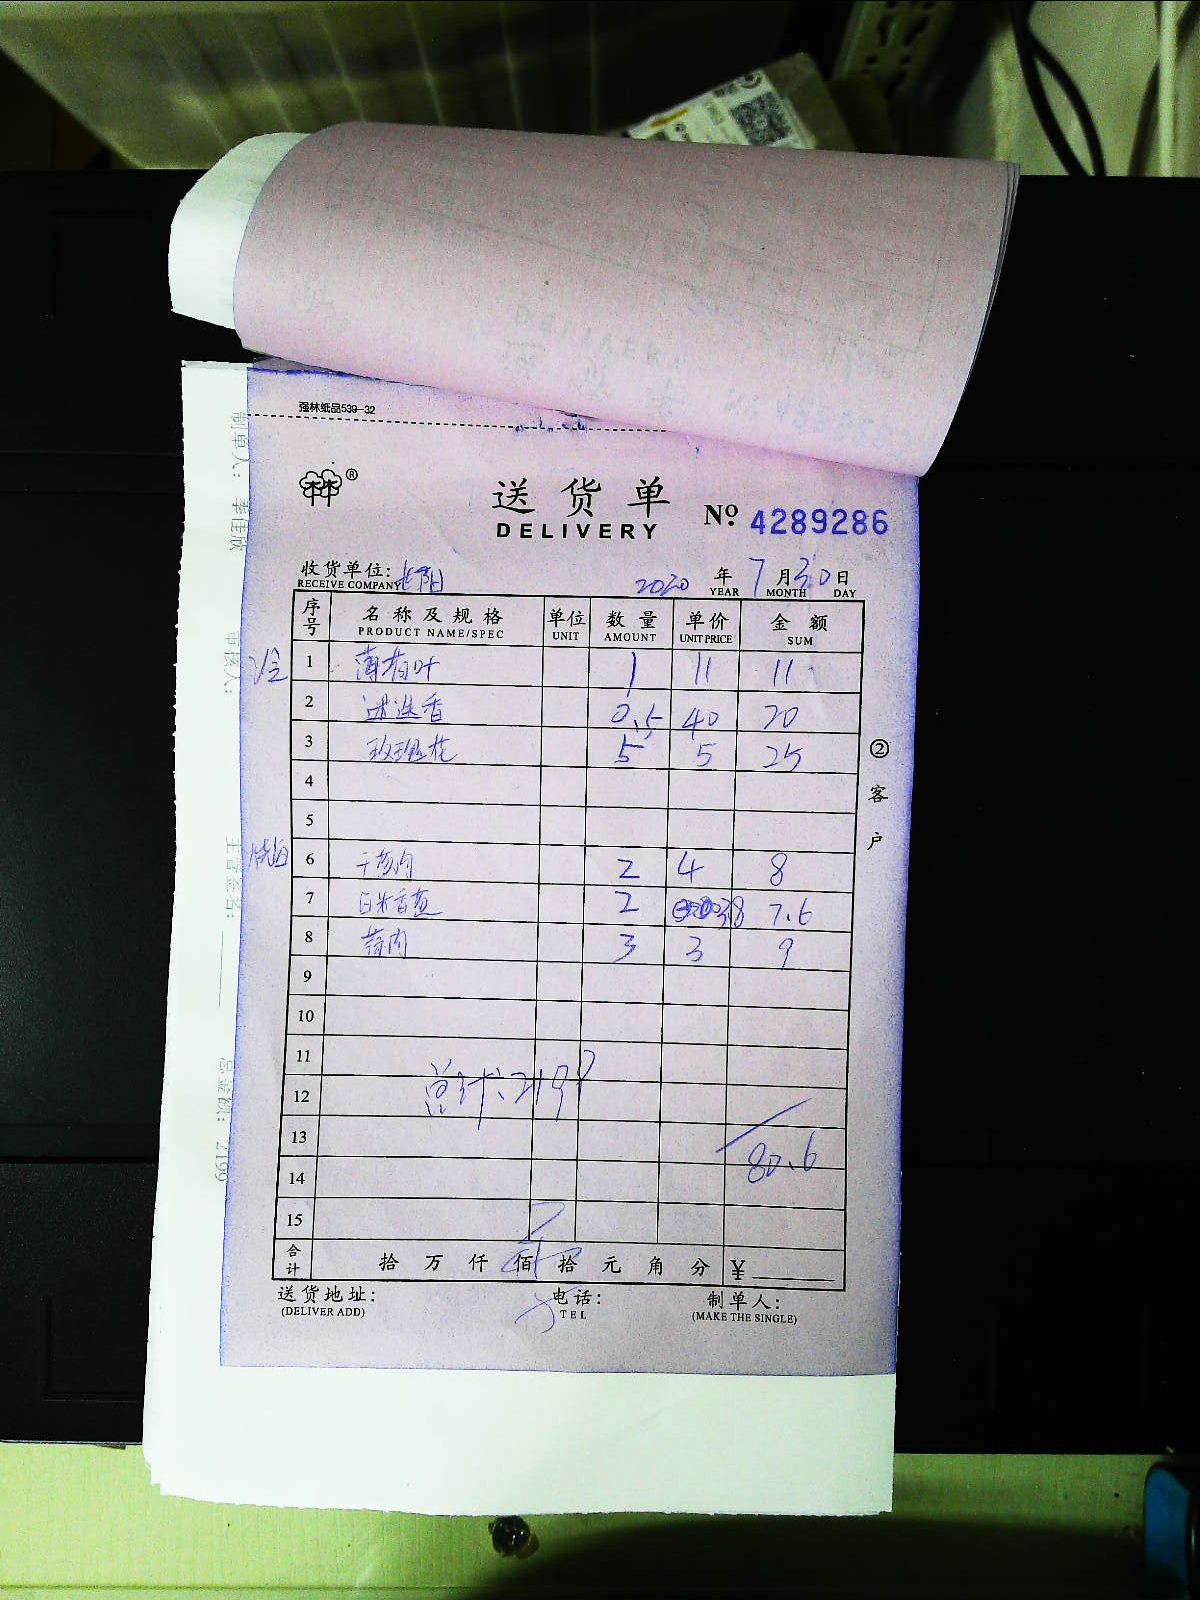 强林纸品539-32
送货单 Nº. 4289286
DELIVERY
收货单位: 2020 年 7 月 30 日
RECEIVE COMPANY YEAR MONTH DAY
序号 名称及规格 单位 数量 单价 金额
PRODUCT NAME/SPEC UNIT AMOUNT UNIT PRICE SUM
1 薄荷叶 1 11 11
2 迷迭香 0.5 40 20
3 玫瑰花 5 5 25
4
5
6 2 4 8
7 2 3.8 7.6
8 蒜肉 3 3 9
9
10
11
12 总计、2199
13
80.6
14
15
合计 拾 万 仟 佰 拾 元 角 分 ¥
送货地址: 电话: 制单人:
(DELIVER ADD) TEL (MAKE THE SINGLE)
②客户
制单人: 李佳欣
审核人:
主管签名:
总金额: 2199